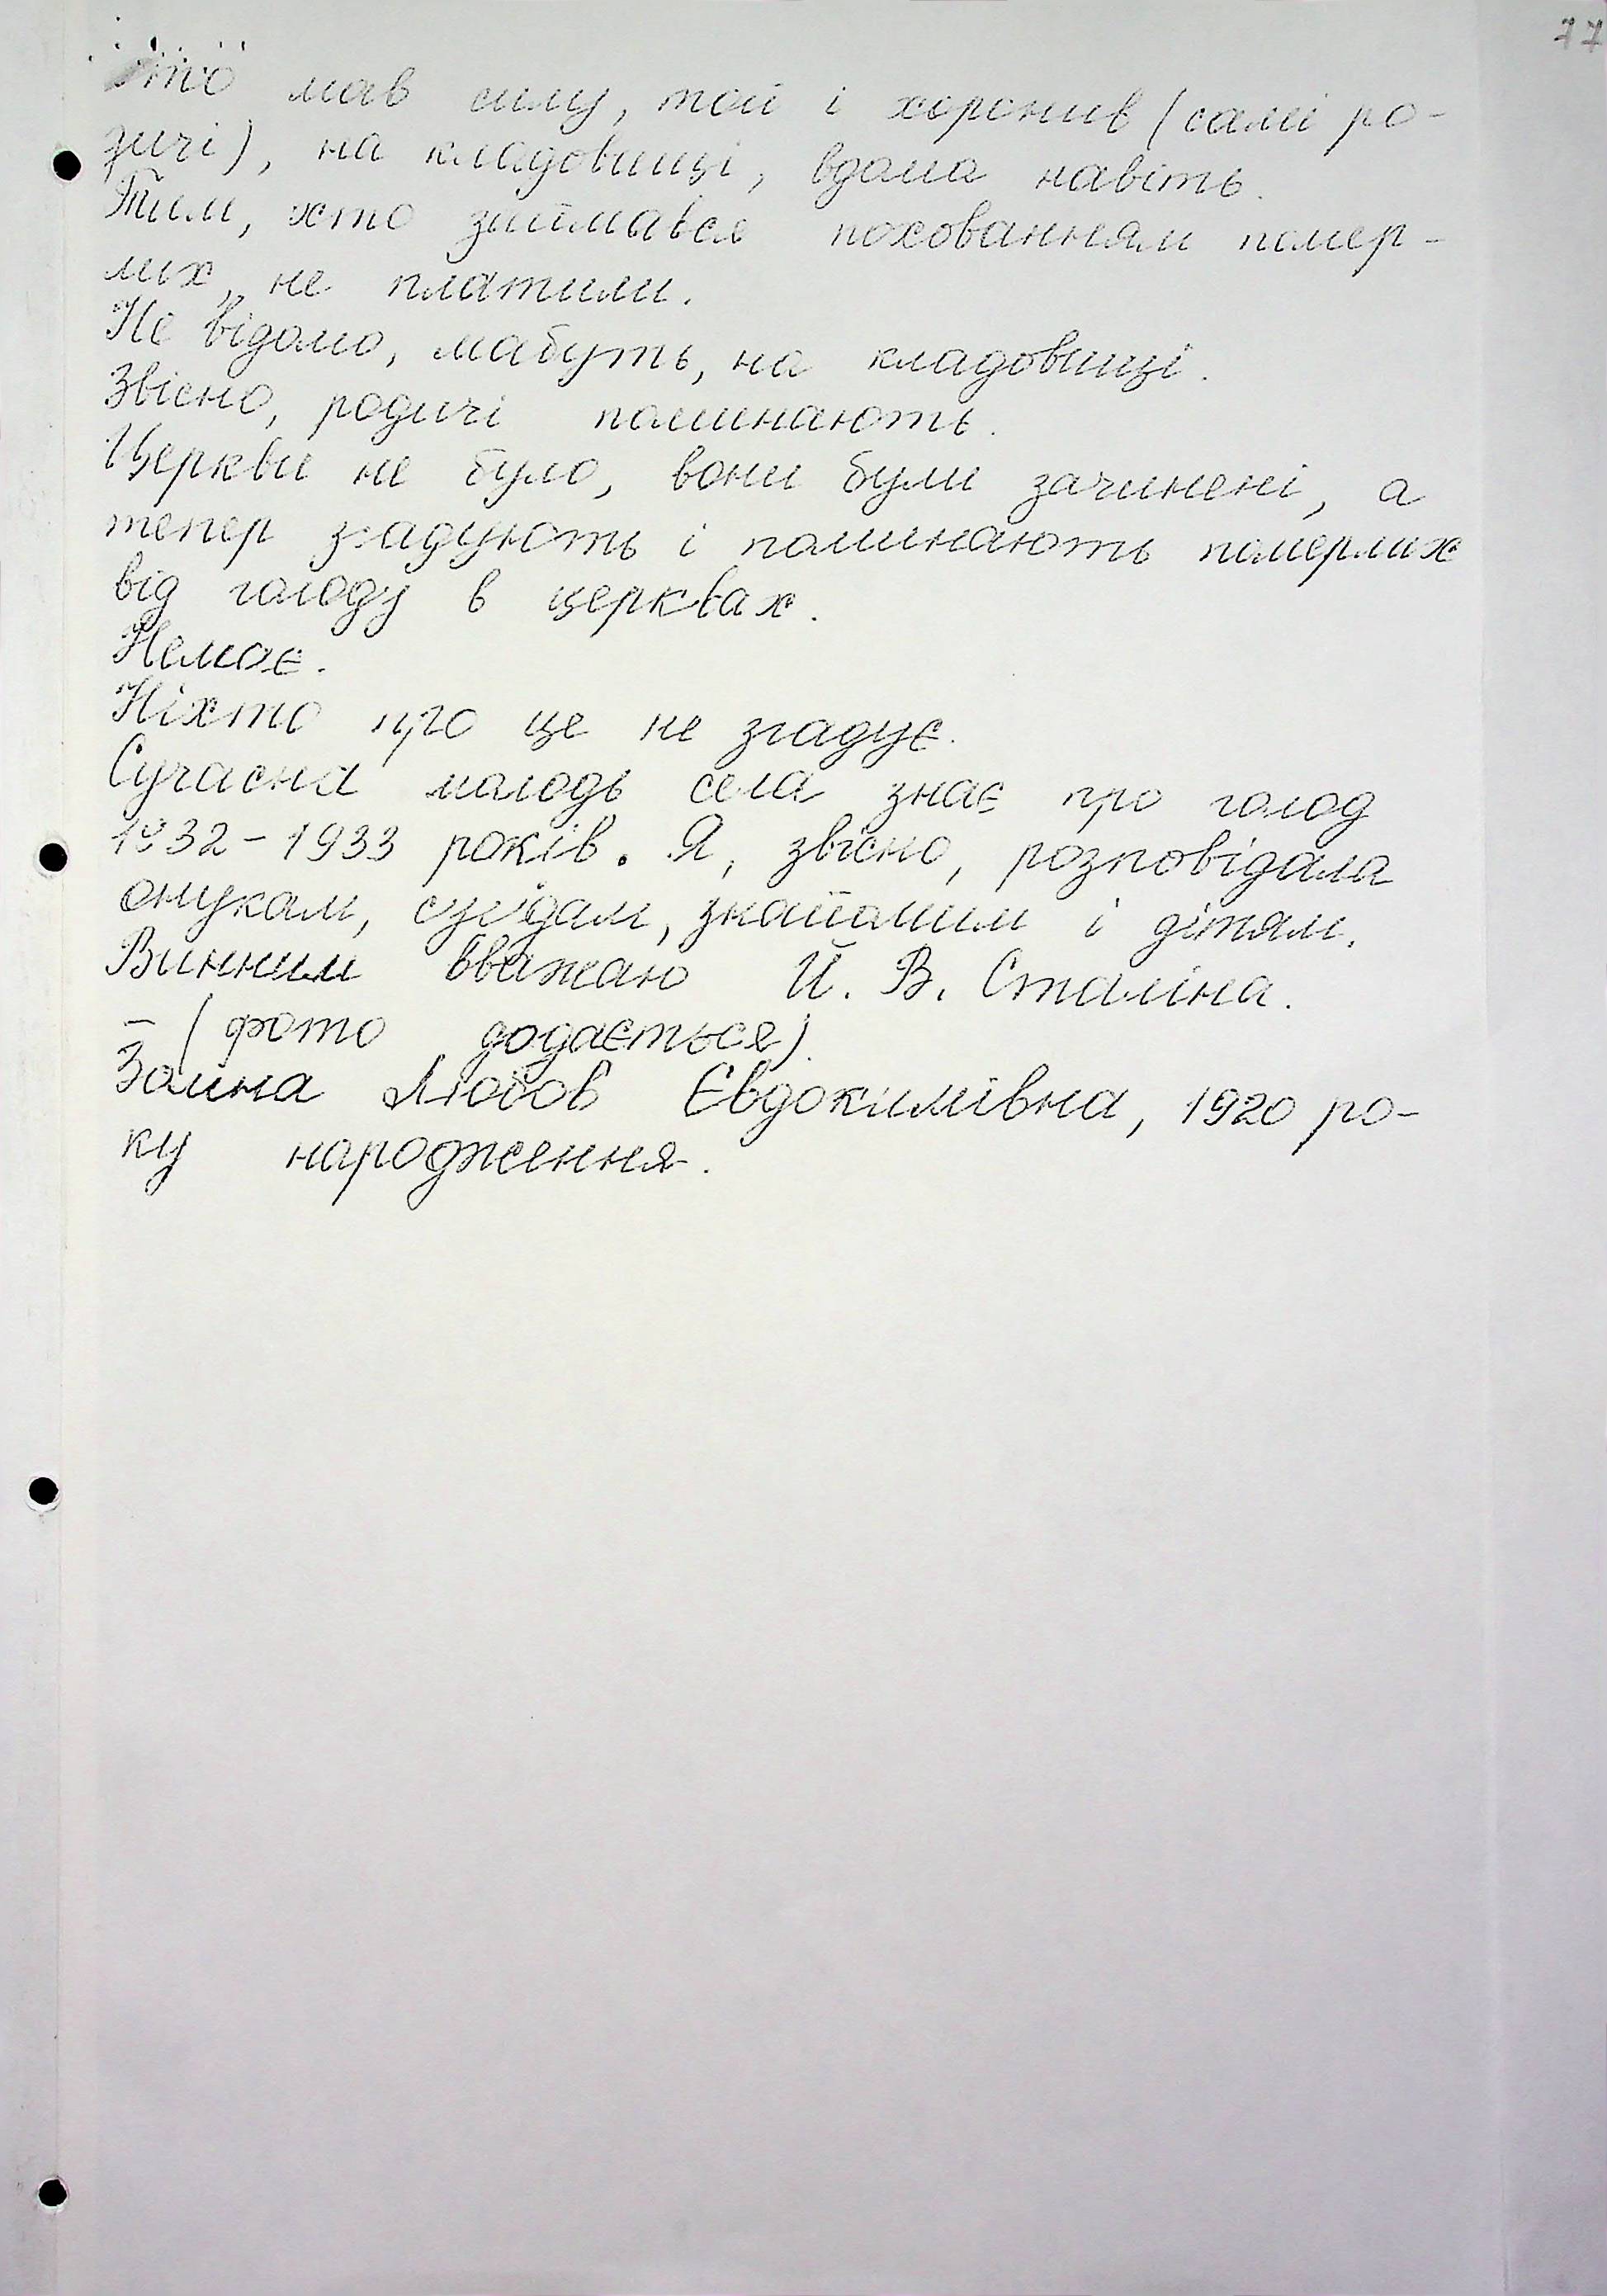 77
Хто мав силу, той і хоронив (самі ро-
дичі), на кладовищі, вдома навіть.
Тим, хто займався похованням помер-
лих, не платили.
Не відомо, мабуть, на кладовищі.
Звісно, родичі поминають.
Церкви не було, вони були зачинені, а
тепер згадують і поминають померлих
від голоду в церквах.
Немає.
Ніхто про це не згадує.
Сучасна молодь села знає про голод
1932-1933 років. Я, звісно, розповідала
онукам, сусідам, знайомим і дітям.
Винним вважаю Й. В. Сталіна.
– (фото додається).
Заїна Любов Євдокимівна, 1920 ро-
ку народження.